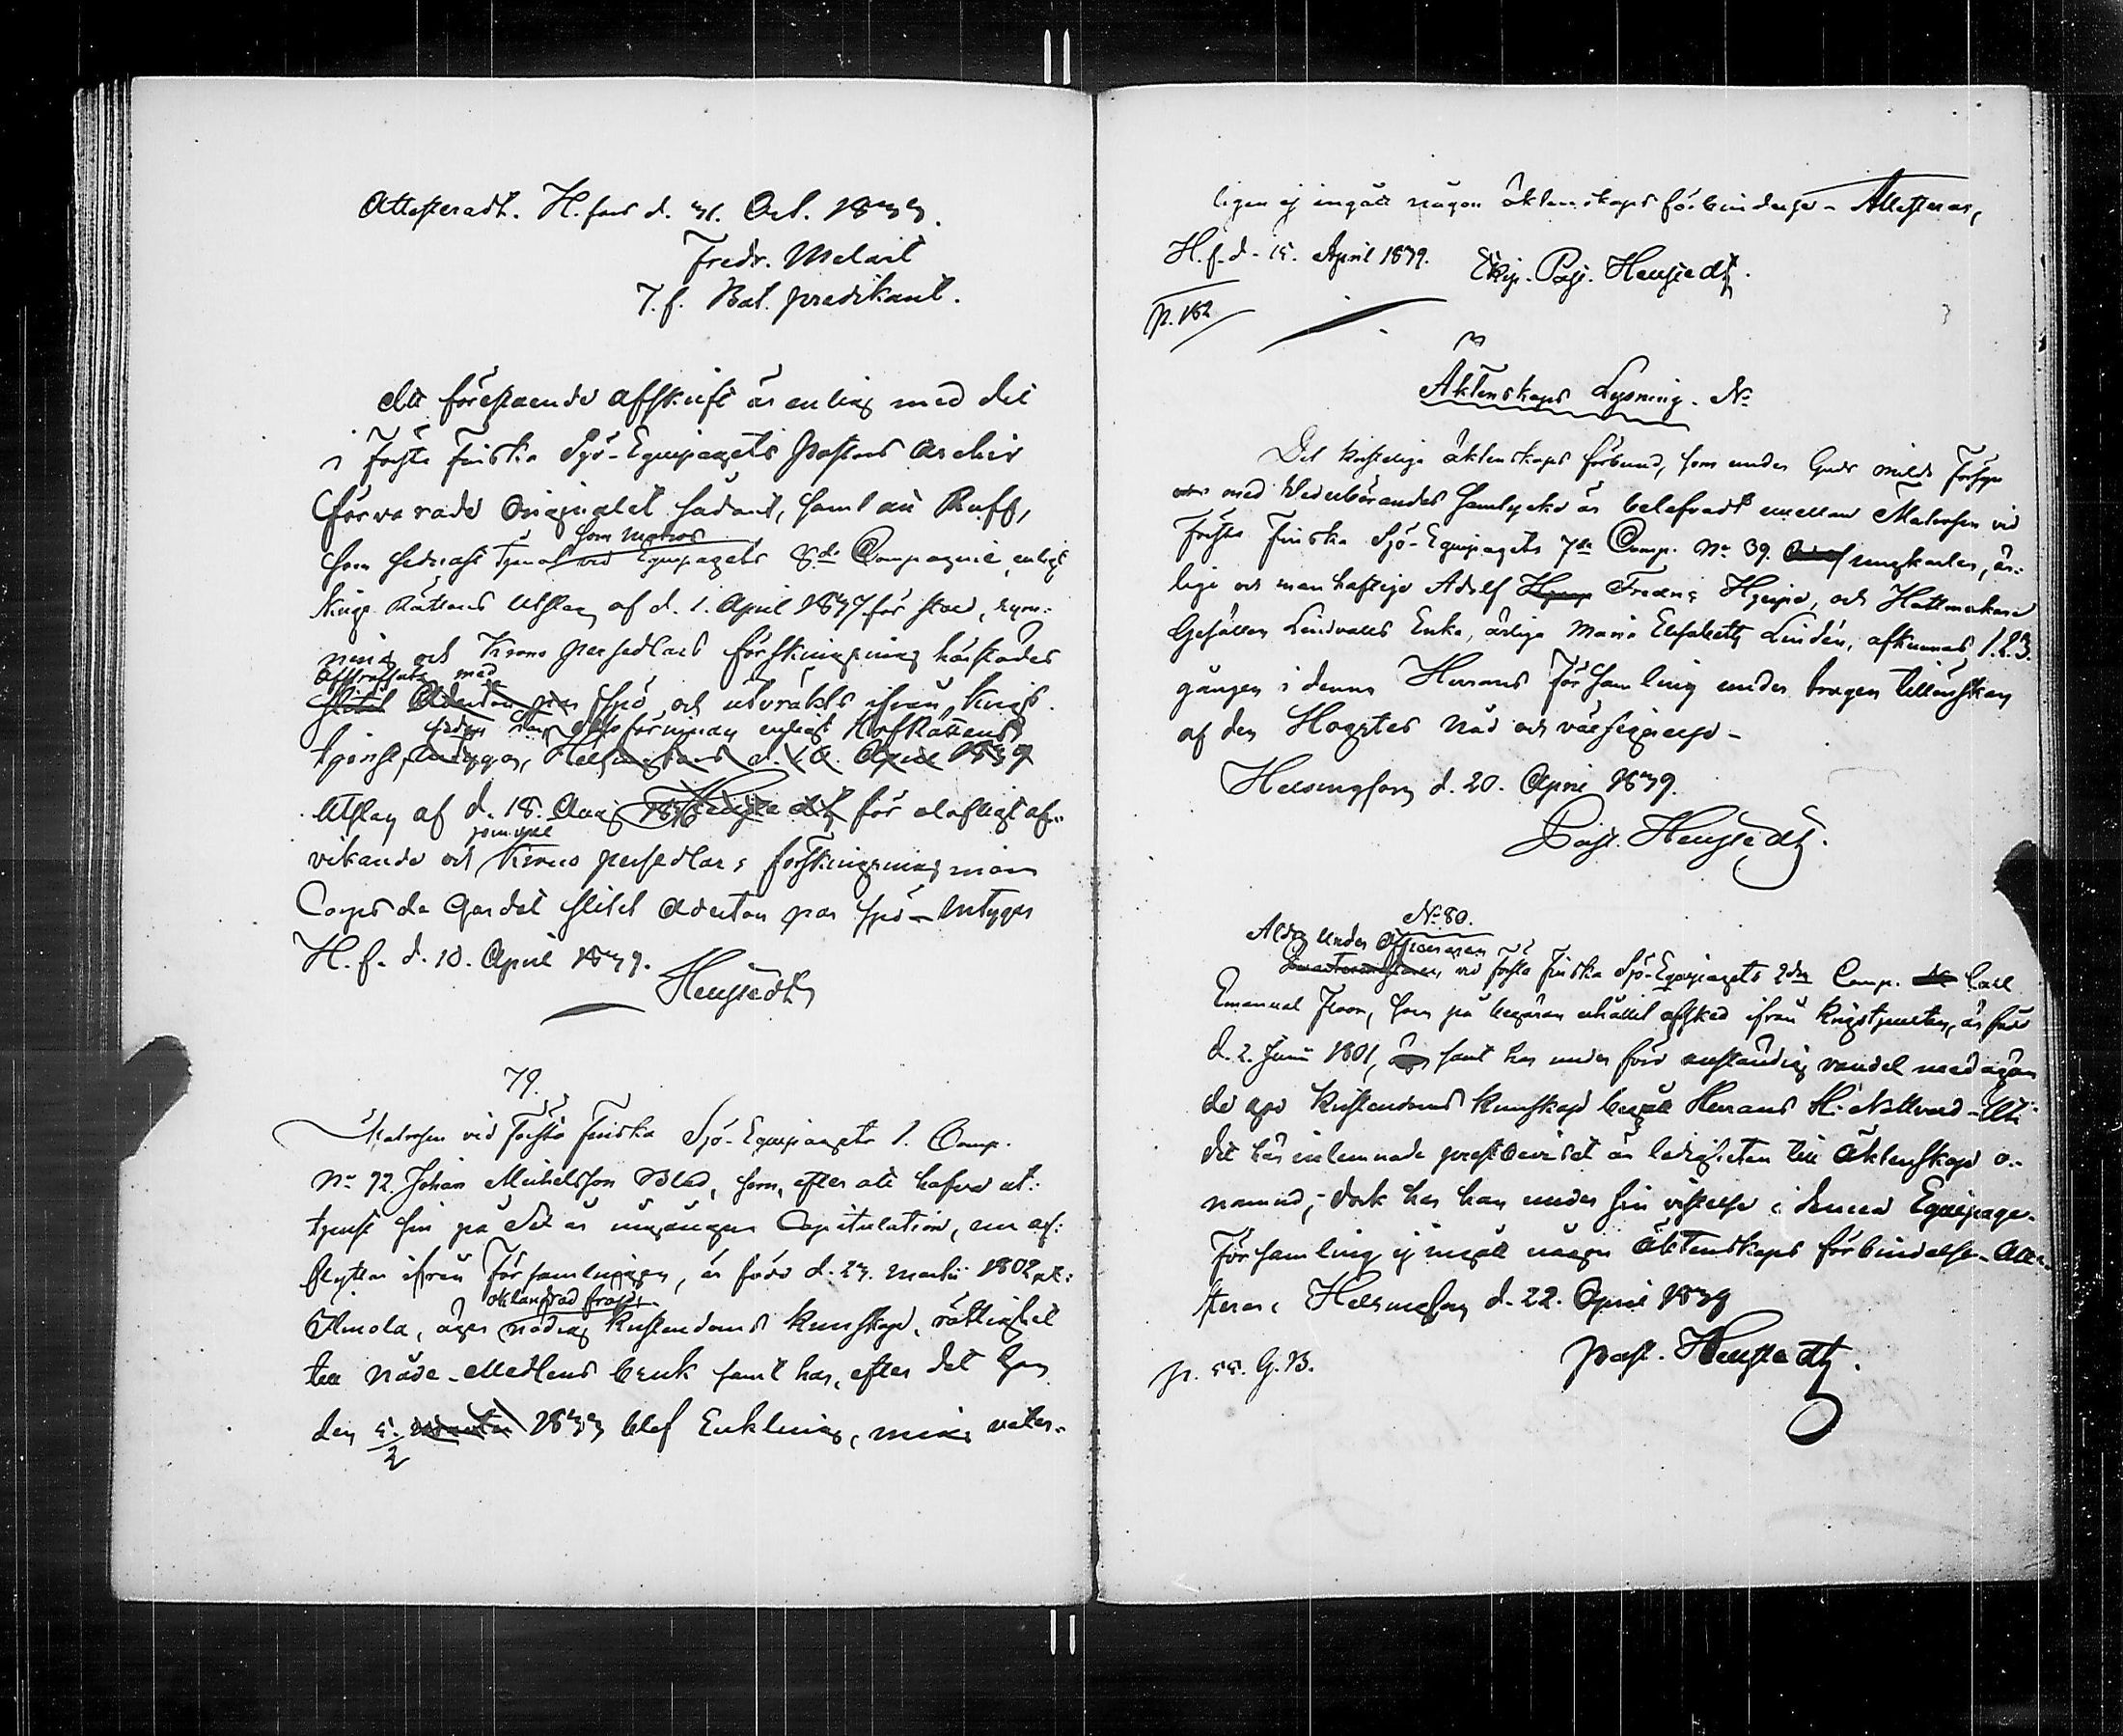 Attesteradt. H.fors d. 31. Oct. 1833.
Fredr. Melart
T. f. Bat. predikant.
Att förestående afskrift är enlig med det
i Första Finska Sjö-Equipagets Pastors Archiv
förvarade Originalet sådant, samt att Ruff,
som Matros
som sednast tjenat vid Equipagets 8de Compagnie, enligt
Krigs Rättens Utslag af d. 1. April 1837 för stöld, rym-
ning och Krono persedlars förskingring härstädes
afstraffats med
slitit Aderton par spö, och utvräkts ifrån Krigs-
sedan han enligt HofRättens
tjenst, intygar, Helsingfors d. 10. April 1839
Utslag af d. 18. Aug. för olofligt af-
jemväl
vikande och Krono persedlars förskingring inom
Corps de Gardet slitit Aderton par spö – Intygar
H. f. d. 10. April 1839.
Heustedt
79.
Matrosen vid Första Finska Sjö-Equipagets 1. Comp.
No 92. Johan Michelsson Blad, som, efter att hafva ut-
tjenst sin på år ingångna Capitulation, nu af-
flyttar ifrån Församlingen, är född d. 23. Martii 1802 uti
oklandrad frägd
Ilmola, äger nödig Kristendoms kunskap, rättighet
till Nåde-Medlens bruk samt har, efter det han
den 5/2 1833 blef Enkling, mig veter-
ligen ej ingått någon äktenskaps förbindelse – Attesteras,
H. f. d. 15. April 1839. Ekip. Past. Heustedt.
p. 162
Äktenskaps Lysning. No
Det kristeliga äktenskaps förbund, som under Guds milda försyn
med Vederbörandes samtycke är belefvadt emellan Matrosen vid
Första Finska Sjö-Equipagets 7de Comp. No 39. ungkarlen, är-
lige och manhaftige Adolf Fredric Hjerpe, och Hattmakare
Gesällen Lindvalls Enka, ärliga Maria Elisabeth Lindén, afkunnas 1. 2. 3.
gången i denna Herrans Församling under trogen tillönskan
af den Högstes nåd och välsignelse –
Helsingfors d. 20. April 1839.
Past. Heustedt.
No 80.
Under Officeraren
vid Första Finska Sjö-Equipagets 2dra Comp. Carl
Emanuel Floor, som på begäran erhållit afsked ifrån Krigstjensten, är född
d. 2. Junii 1801, samt har under förd anständig vandel med ägan-
de god Kristendoms kunskap begått Herrans H. Nattvard – Uti
det här inlemnade prestbeviset är ledigheten till Äktenskap o-
nämnd; – dock har han under sin vistelse i denna Equipage-
Församling ej ingått någon Äktenskaps förbindelse – Atte-
steras, Helsingfors d. 22. April 1839
Past. Heustedt.
p. 55. G. B.